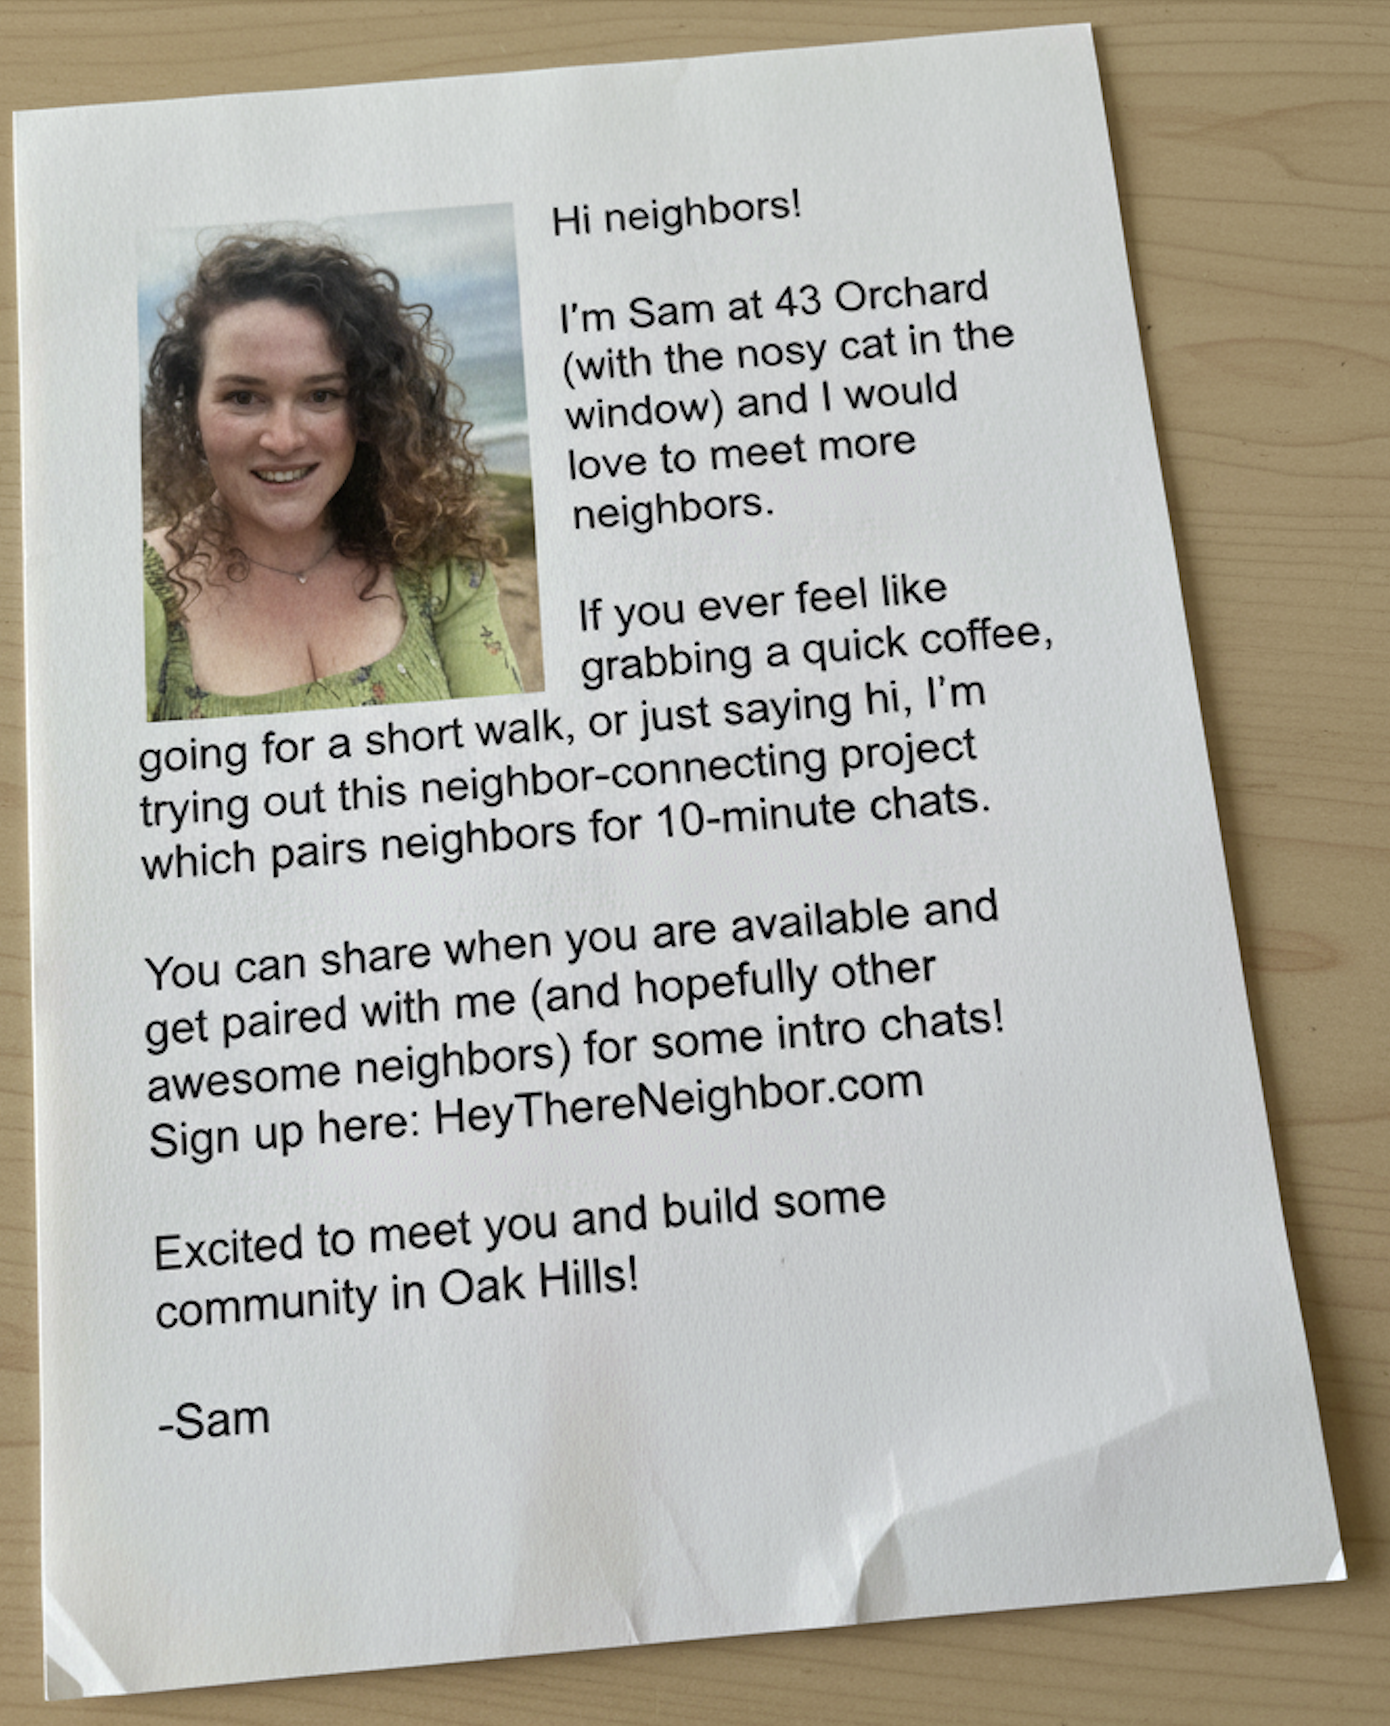 Hi neighbors!
I'm Sam at 43 Orchard
(with the nosy cat in the
window) and I would
love to meet more
neighbors.
If you ever feel like
grabbing a quick coffee,
going for a short walk, or just saying hi, I'm
trying out this neighbor-connecting project
which pairs neighbors for 10-minute chats.
You can share when you are available and
get paired with me (and hopefully other
awesome neighbors) for some intro chats!
Sign up here: HeyThereNeighbor.com
Excited to meet you and build some
community in Oak Hills!
-Sam